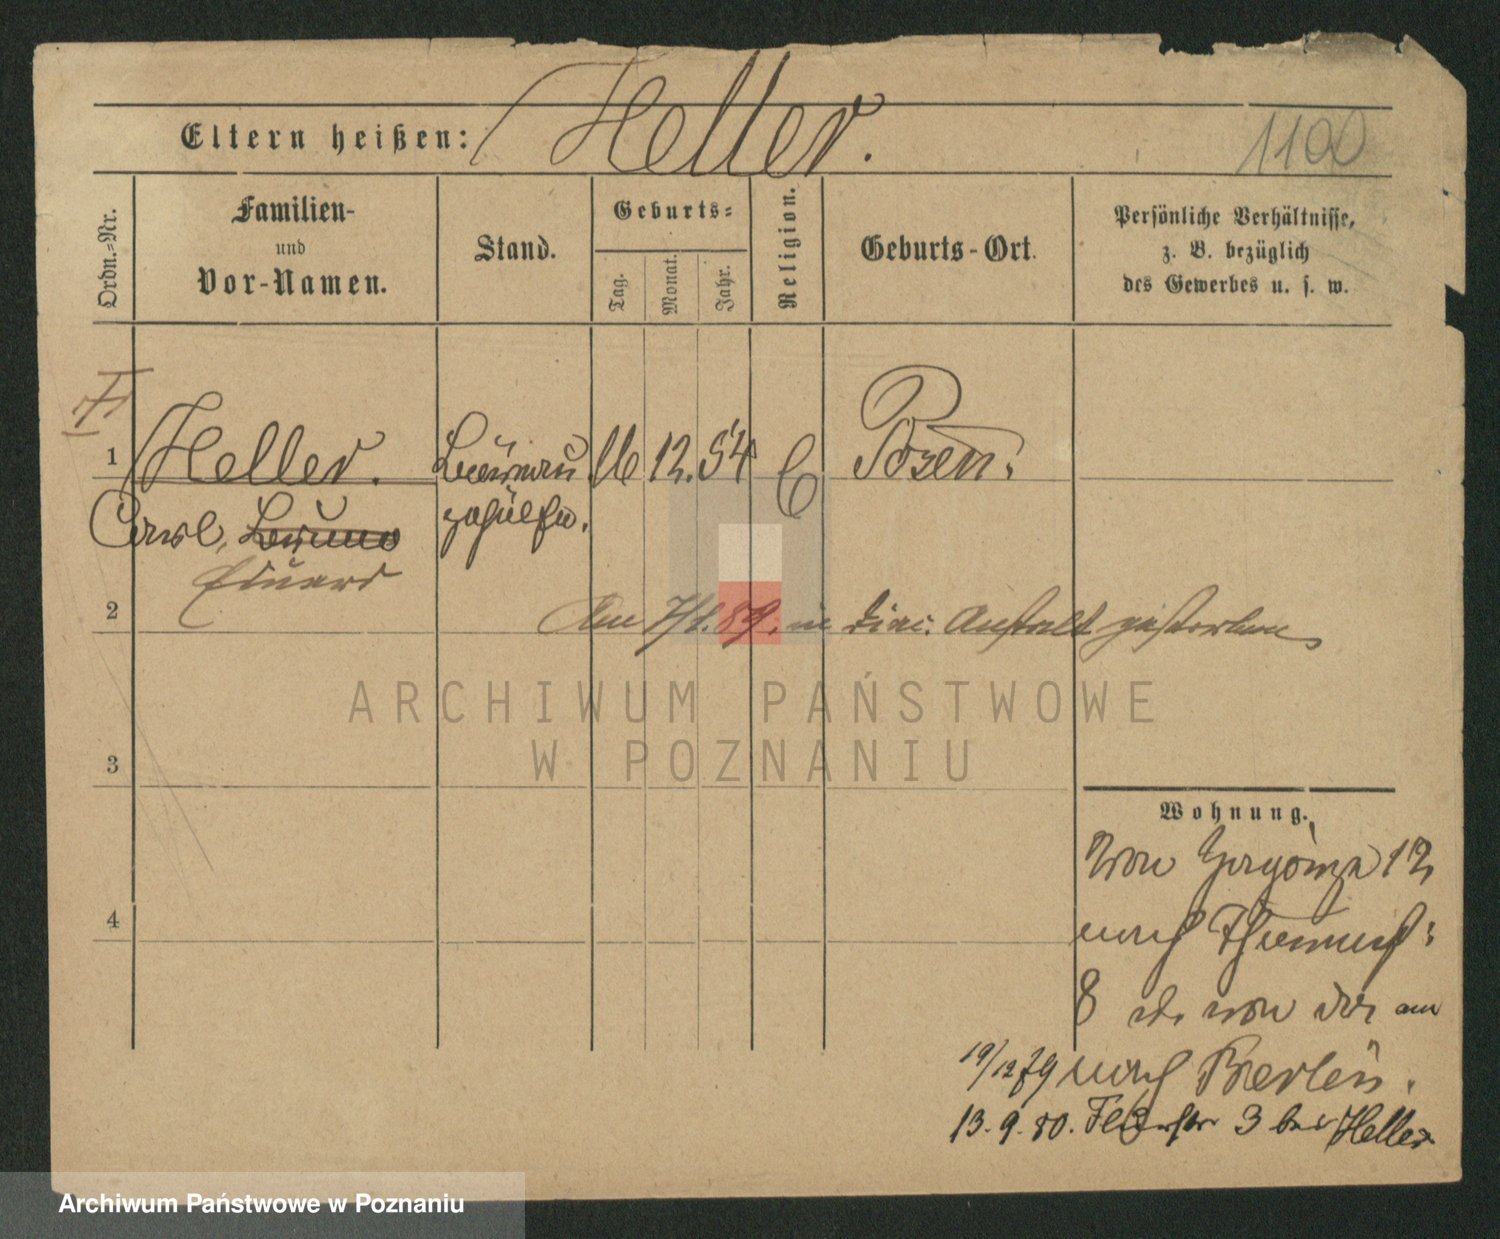 Eltern heißen: Heller.
1100
Ordn.-Nr.
Familien-
und
Vor-Namen.
Stand.
Geburts-
Tag.
Monat.
Jahr.
Religion.
Geburts-Ort.
Persönliche Verhältnisse,
z. B. bezüglich
des Gewerbes u. s. w.
1
Heller.
12. 54
Posen.
Carl, Bruno
Eduard
2
Am 7/1. 89. in Diac. Anstalt gestorben
ARCHIWUM PAŃSTWOWE
W POZNANIU
3
Wohnung.
Von 12
4
nach
8 von da am
19/12 79 nach Berlin.
13. 9. 80. 3 bei Heller
Archiwum Państwowe w Poznaniu